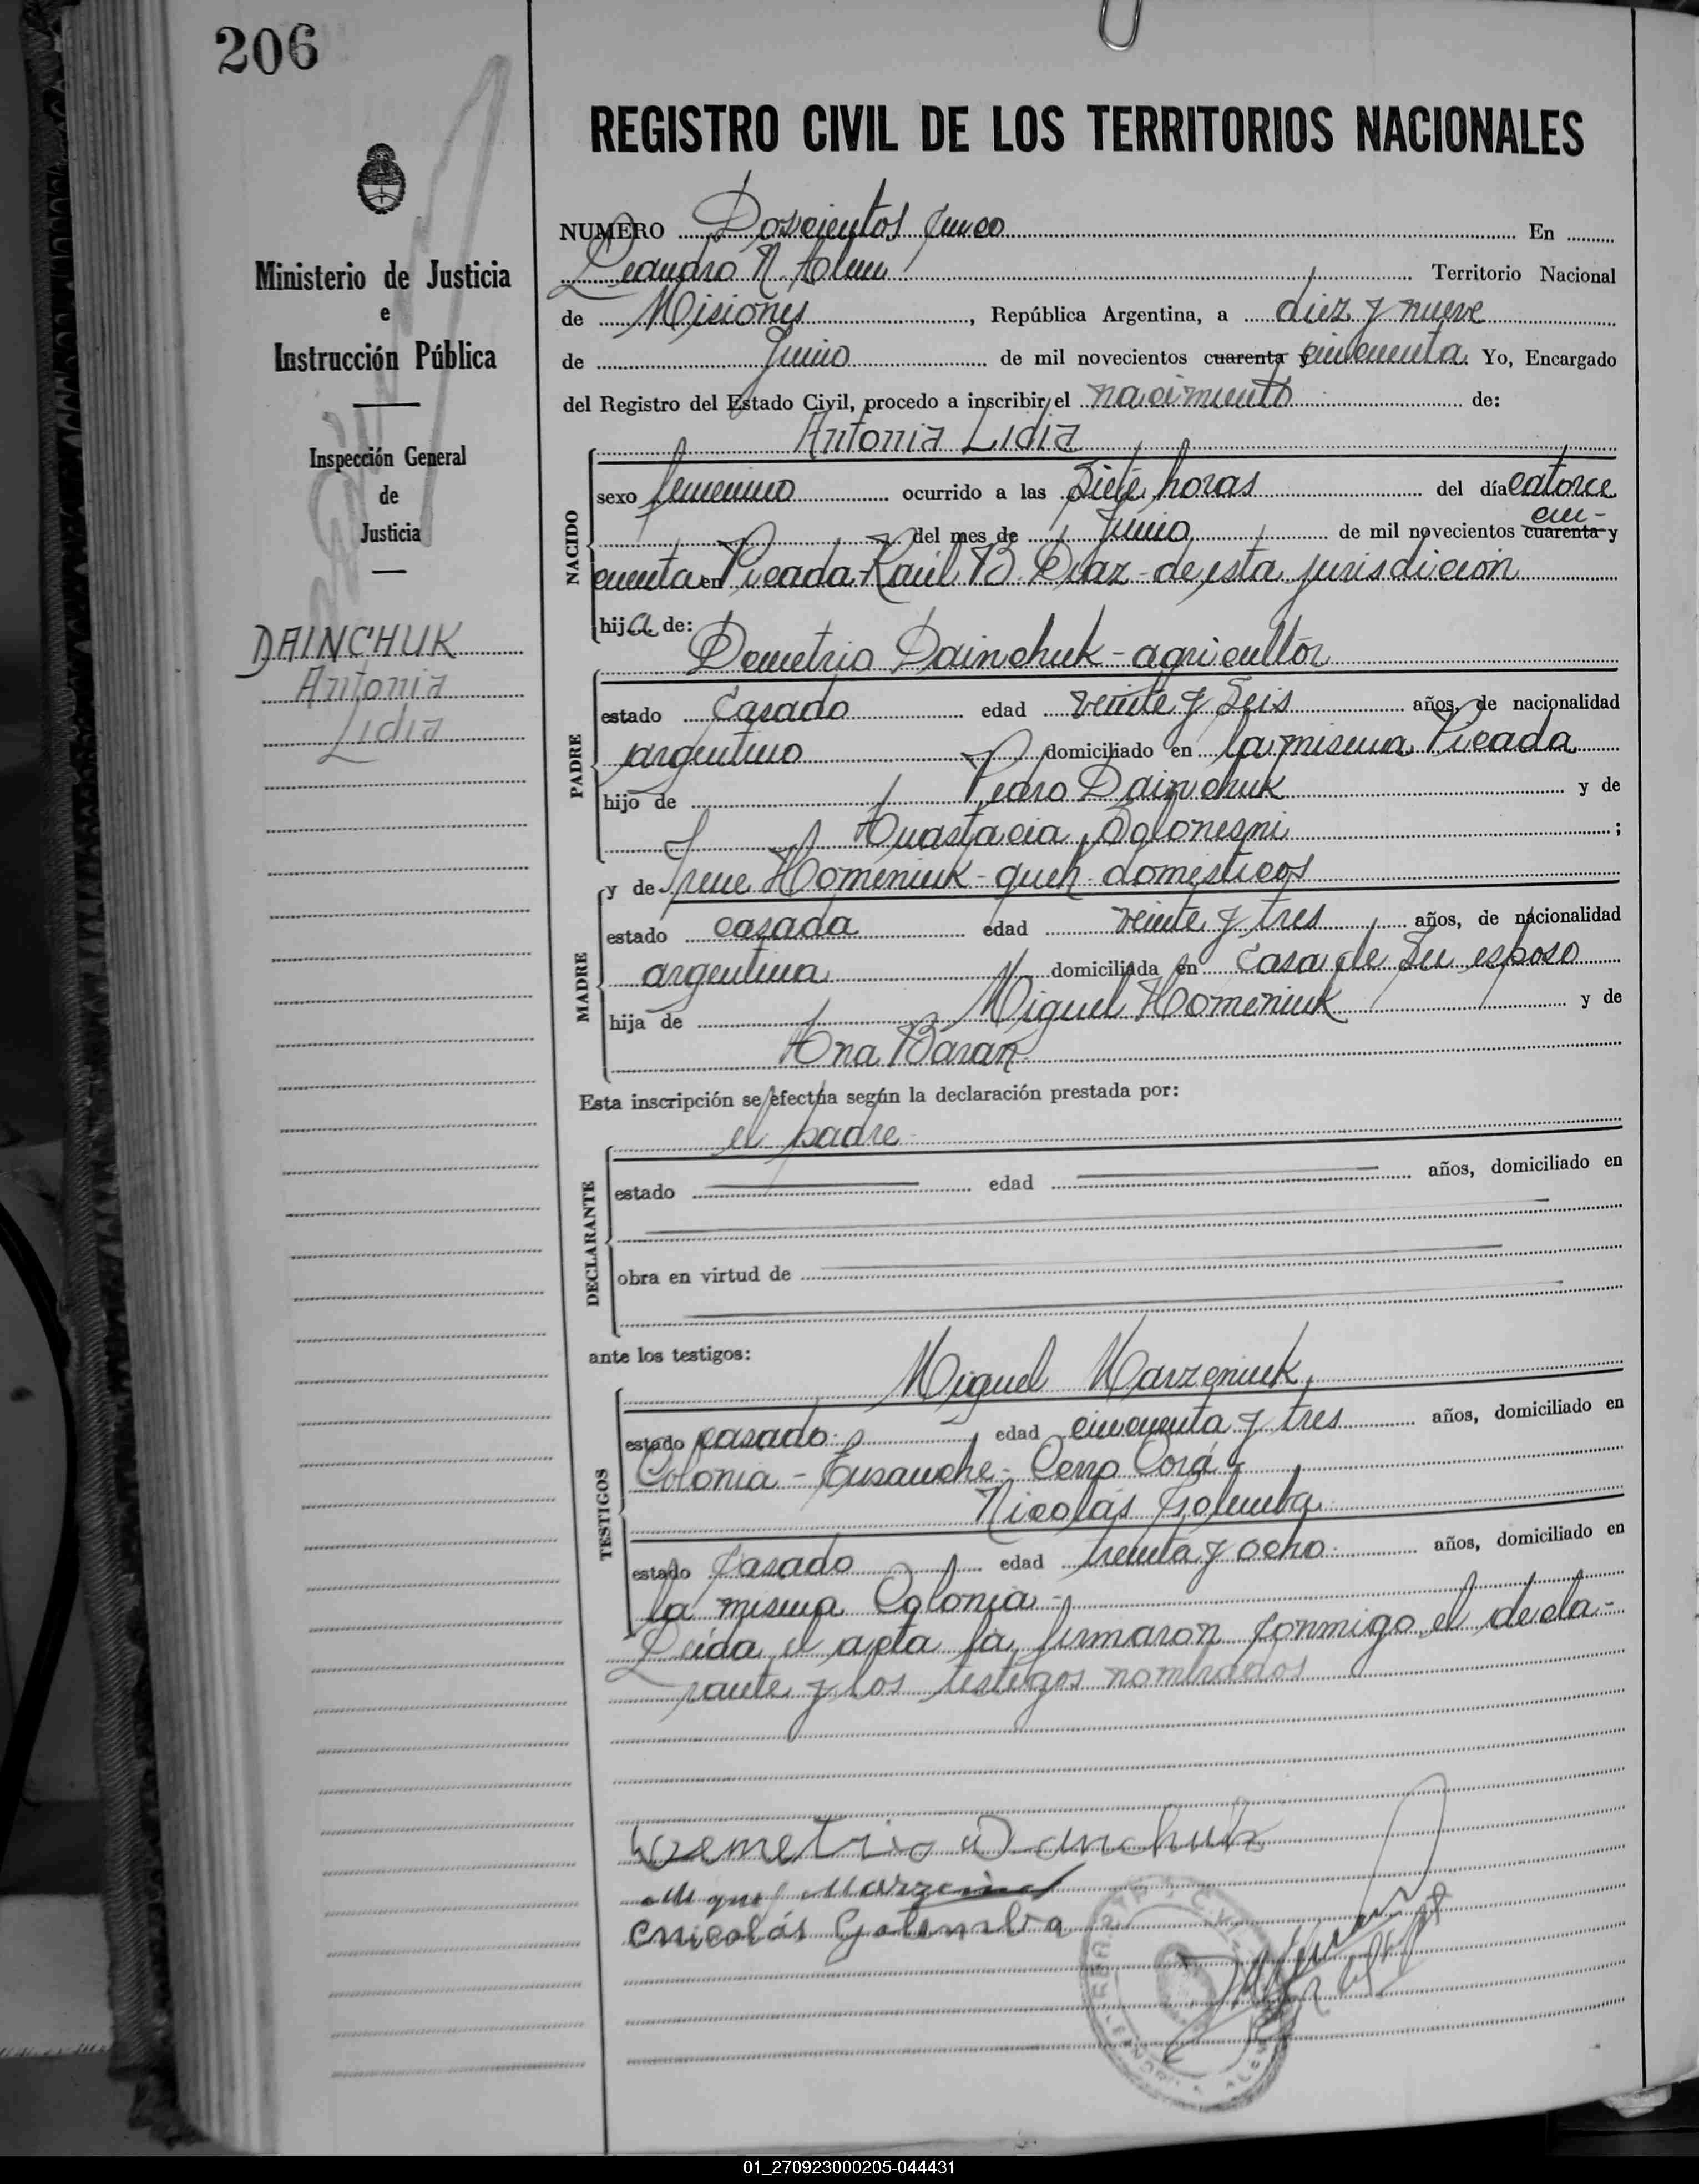 206
Ministerio de Justicia
e
Instrucción Pública
Inspección General
de
Justicia
DAINCHUK
Antonia
Lidia
REGISTRO CIVIL DE LOS TERRITORIOS NACIONALES
NUMERO Doscientos cinco En
Leandro N. Alem Territorio Nacional
de Misiones, República Argentina, a diez y nueve
de Junio de mil novecientos cuarenta y cincuenta. Yo, Encargado
del Registro del Estado Civil, procedo a inscribir el nacimiento de:
Antonia Lidia
NACIDO
sexo femenino ocurrido a las siete horas del día catorce
del mes de Junio de mil novecientos cuarenta y cin-
cuenta en Picada Raúl B. Diaz - de esta jurisdicción
hija de:
Demetrio Dainchuk - agricultor
PADRE
estado casado edad veinte y seis años, de nacionalidad
argentino domiciliado en la misma Picada
hijo de Pedro Dainchuk y de
Anastacia Bolonesni;
y de Irene Homeniuk - queh. domesticos
MADRE
estado casada edad veinte y tres años, de nacionalidad
argentina domiciliada en casa de su esposo
hija de Miguel Homeniuk y de
Ana Baran
Esta inscripción se efectúa según la declaración prestada por:
el padre
DECLARANTE
estado edad años, domiciliado en
obra en virtud de
ante los testigos:
Miguel Marzeniuk
TESTIGOS
estado casado edad cincuenta y tres años, domiciliado en
Colonia - Ensanche - Cerro Corá -
Nicolás Golemba
estado casado edad treinta y ocho años, domiciliado en
la misma Colonia -
Leída el acta la firmaron conmigo el decla-
rante y los testigos nombrados
Demetrio Danchuk
Miguel
Nicolás Golemba
01_270923000205-044431